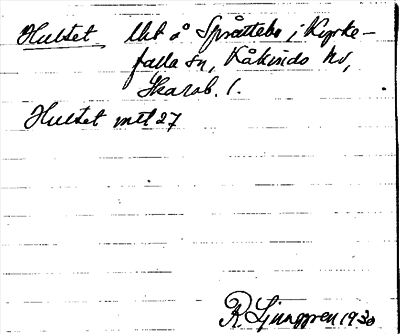 Hultet Ut å Språttebo i Kyrke-
falla sn, Kåkinds hd,
Skarab. l.
Hultet mtl 27
R Ljunggren 1930